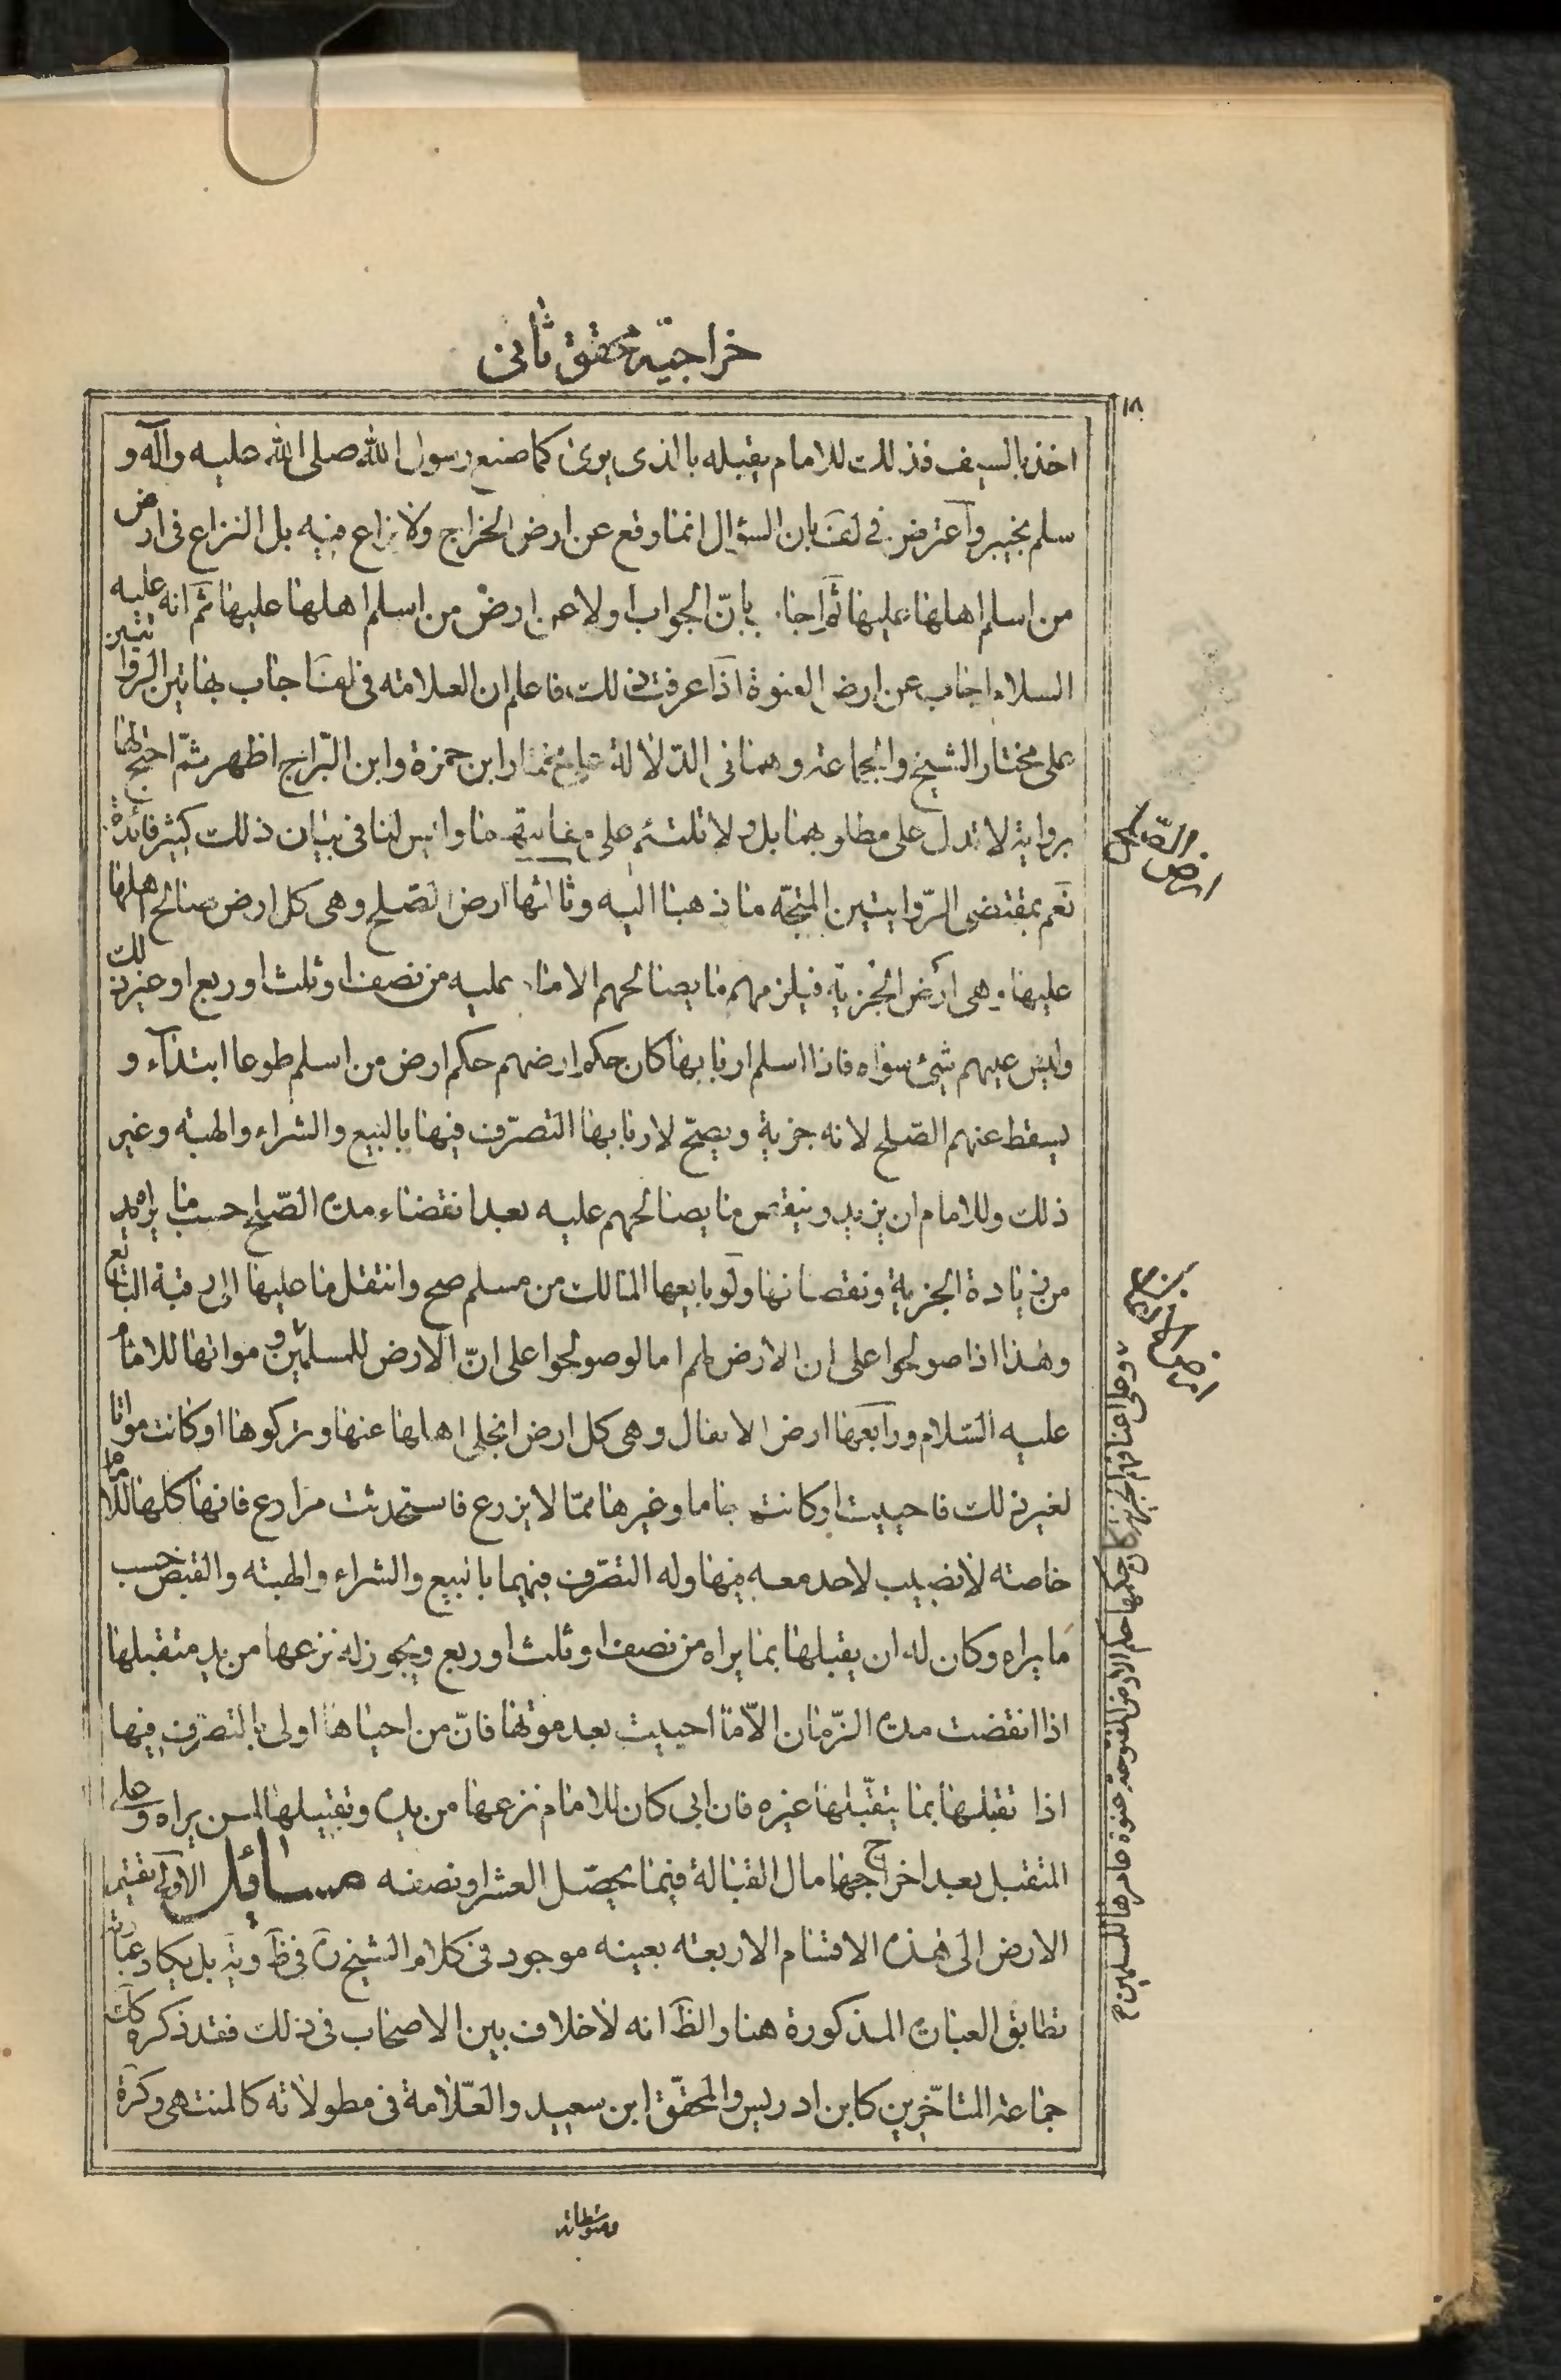 خراجیّه محقق ثانی
١٨
اخذ بالسيف فذلك للامام يقبله بالذى يرى كما صنع رسول الله صلى الله عليه وآله و
سلم بخيبر واعترض فى لف بان السؤال انما وقع عن ارض الخراج ولا نزاع فيه بل النزاع فى ارض
من اسلم اهلها عليها ثم اجاب بانّ الجواب اولا عن ارض من اسلم اهلها عليها ثم انه عليه
السلام اجاب عن ارض العنوة اذا عرفت ذلك فاعلم ان العلامة فى لف اجاب بهاتين الروايتين
على مختار الشيخ والجماعة وهما فى الدّلالة على مختار ابن حمزة وابن البّراج اظهر ثمّ احتج لهما
برواية لا تدل على مطلوبهما بل ولا تلتئم على مقابلتهما وليس لنا فى بيان ذلك كثير فائدة
نعم بمقتضى الرّوايتين المتجّه ما ذهبنا اليه وثالثها ارض الصّلح وهى كل ارض صالح اهلها
عليها وهى ارض الجزية فيلزمهم ما يصالحهم الامام عليه من نصف او ثلث او ربع او غير ذلك
وليس عليهم شئ سواه فاذا اسلم اربابها كان حكم ارضهم حكم ارض من اسلم طوعا ابتداء و
يسقط عنهم الصّلح لانه جزية ويصحّ لاربابها التصرّف فيها بالبيع والشراء والهبة وغير
ذلك وللامام ان يزيد وينقص ما يصالحهم عليه بعد انقضاء مدة الصّلح حسب ما يراه
من زيادة الجزية ونقصانها ولو بايعها المالك من مسلم صح وانتقل ما عليها الى رقبة البائع
وهذا اذا صولحوا على ان الارض لهم اما لو صولحوا على انّ الارض للمسلمين و مواتها للامام
عليه السّلام ورابعها ارض الانفال وهى كل ارض انجلى اهلها عنها وتركوها او كانت مواتا
لغير ذلك فاحييت او كانت جاما وغيرها ممّا لا يزرع فاستحدثت مزارع فانها كلها للامام
خاصة لا نصيب لاحد معه فيها وله التصرّف فيهما بالبيع والشراء والهبة والقبض حسب
ما يراه وكان له ان يقبلها بما يراه من نصف او ثلث او ربع ويجوز له نزعها من يد متقبلها
اذا انقضت مدة الزّمان الّا ما احييت بعد موتها فانّ من احياها اولى بالتصرّف فيها
اذا تقبلها بما يتقبّلها غيره فان ابى كان للامام نزعها من يده وتقبيلها لمن يراه وعلى
المتقبل بعد اخراجها مال القبالة فيما يحصّل العشر او نصفه مسائل الاولى تقسيم
الارض الى هذه الاقسام الاربعة بعينه موجود فى كلام الشيخ ره فى ظ وية بل يكاد عبارته
تطابق العبارة المذكورة هنا والظ انه لا خلاف بين الاصحاب فى ذلك فقد ذكره كك
جماعة المتاخّرين كابن ادريس والمحقّق ابن سعيد والعلّامة فى مطولاته كالمنتهى وكرة
ارض الصلح
ارض الانفال
ومتوسطاته